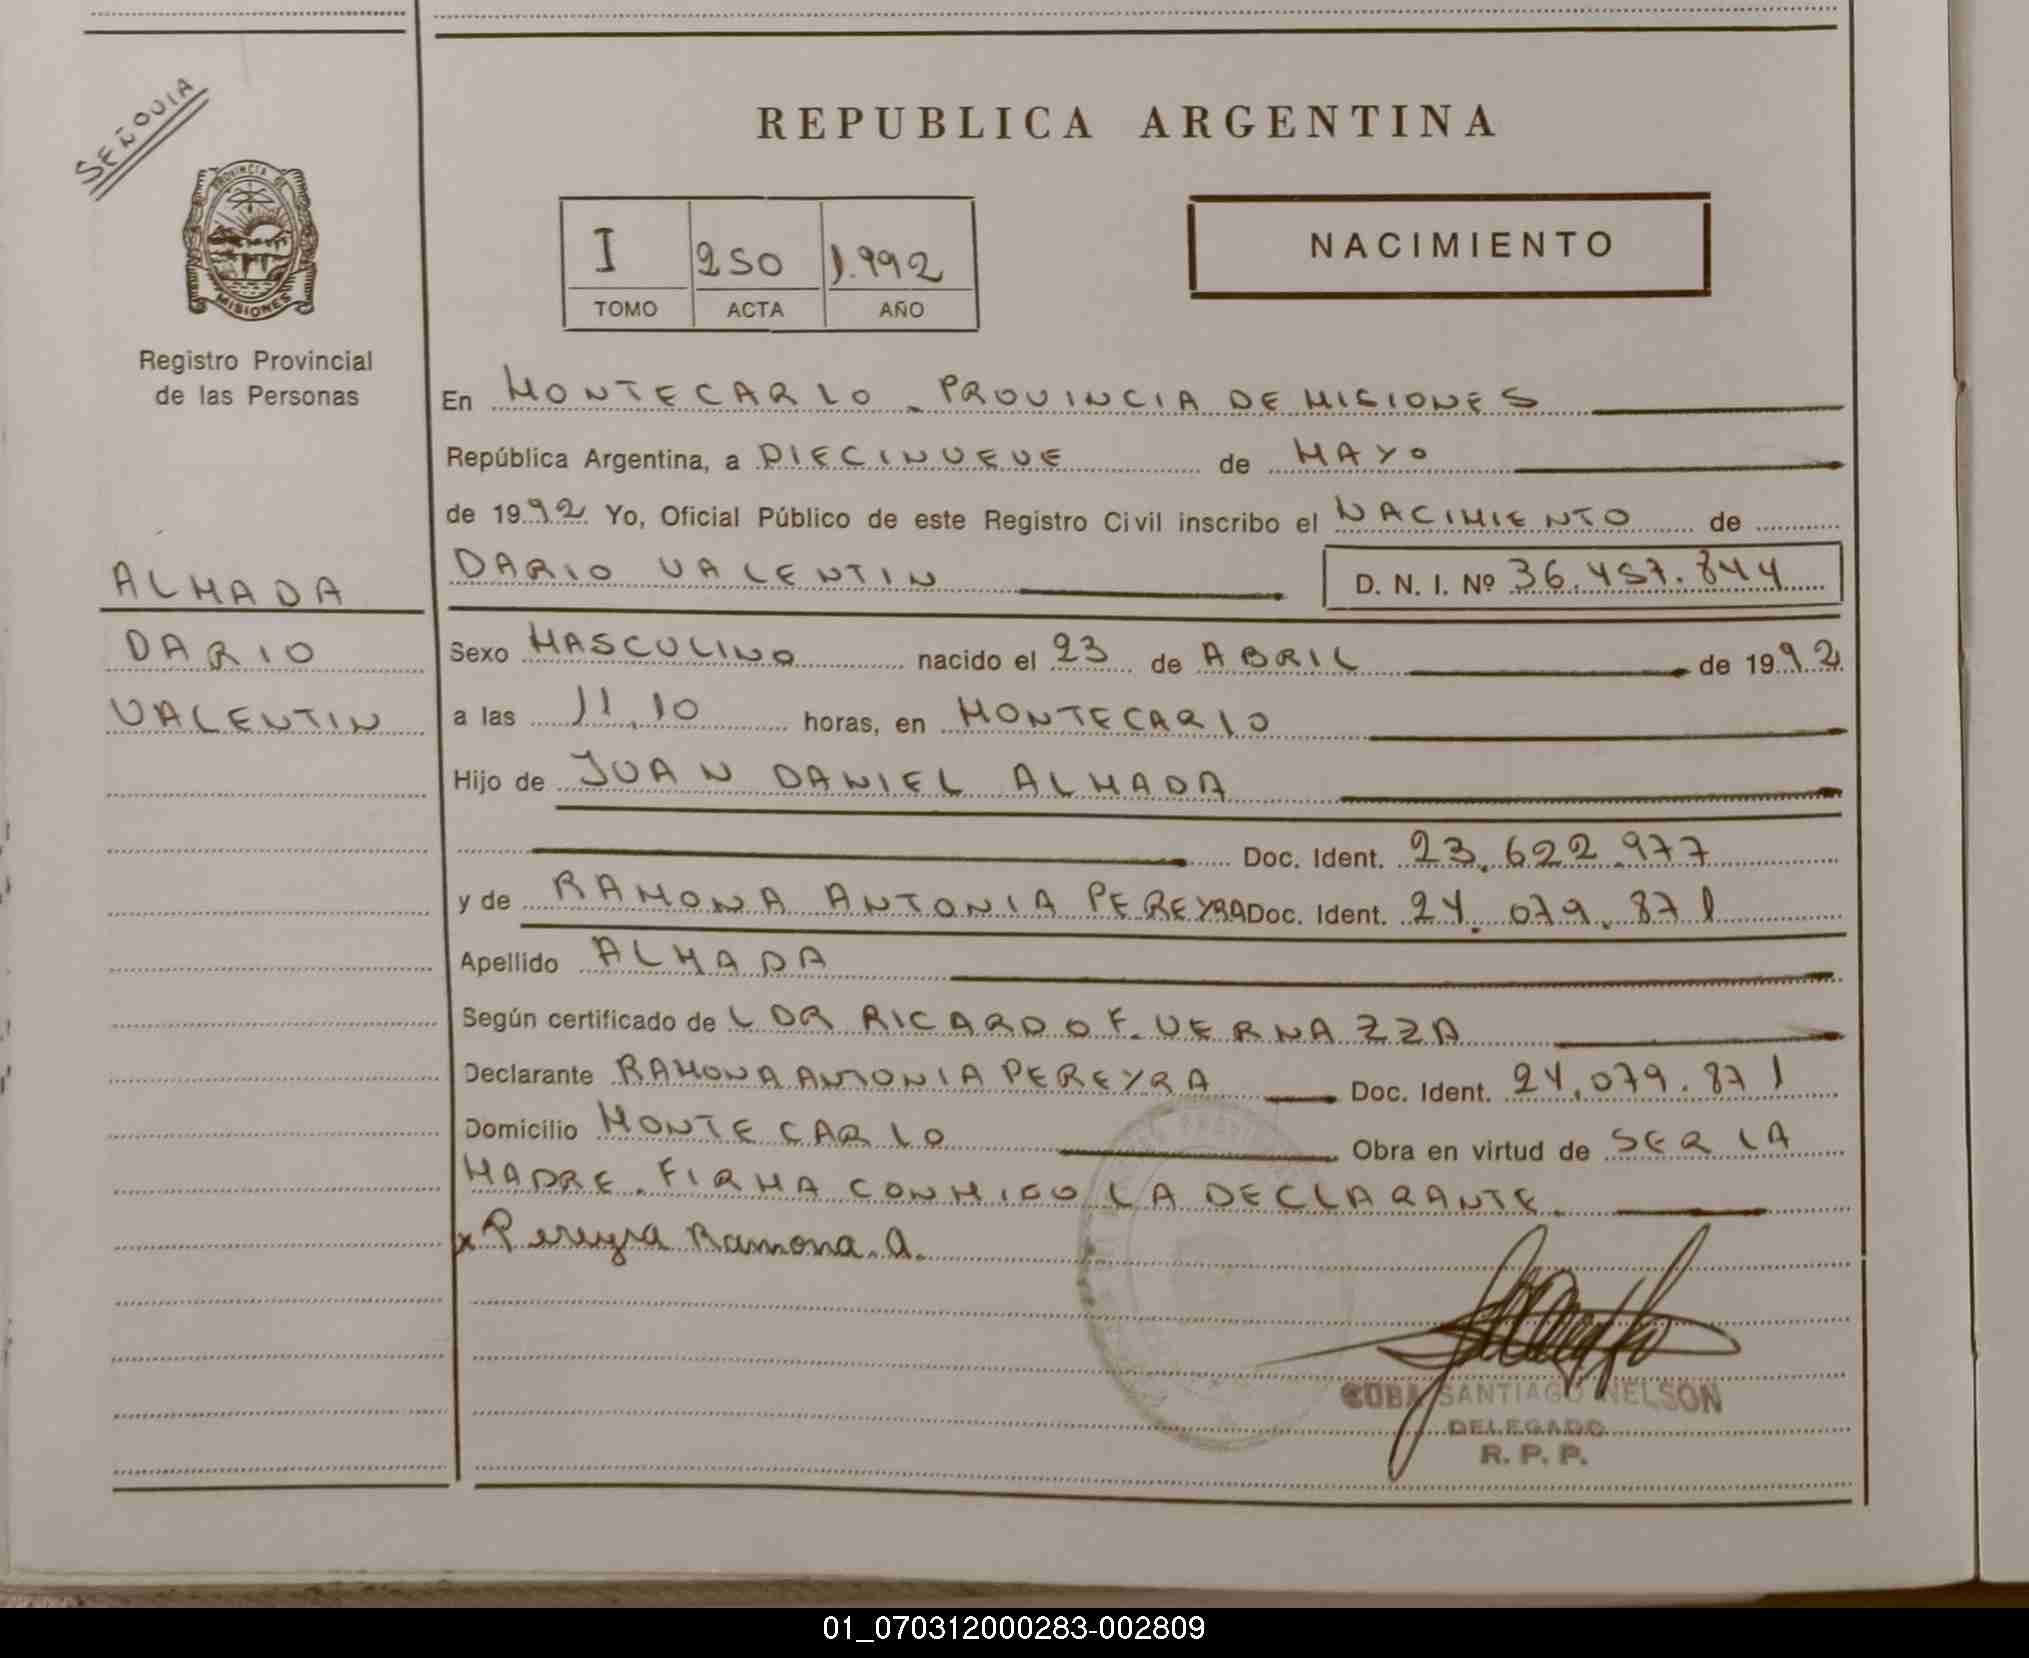 SEÑOUIA
PROVINCIA DE
MISIONES
Registro Provincial
de las Personas
ALMADA
DARIO
VALENTIN
REPUBLICA ARGENTINA
I 250 1.992
TOMO ACTA AÑO
NACIMIENTO
En MONTECARLO. PROVINCIA DE MISIONES
República Argentina, a DIECINUEVE de MAYO
de 1992 Yo, Oficial Público de este Registro Civil inscribo el NACIMIENTO de
DARIO VALENTIN D. N. I. Nº 36.457.844
Sexo MASCULINO nacido el 23 de ABRIL de 1992
a las 11,10 horas, en MONTECARLO
Hijo de JUAN DANIEL ALMADA
Doc. Ident. 23.622.977
y de RAMONA ANTONIA PEREYRA Doc. Ident. 24.079.871
Apellido ALMADA
Según certificado de L DR RICARDO F. VERNAZZA
Declarante RAMONA ANTONIA PEREYRA Doc. Ident. 24.079.871
Domicilio MONTECARLO Obra en virtud de SER LA
MADRE. FIRMA CONMIGO LA DECLARANTE.
x Pereyra Ramona. A.
CUBA SANTIAGO NELSON
DELEGADO
R. P. P.
01_070312000283-002809